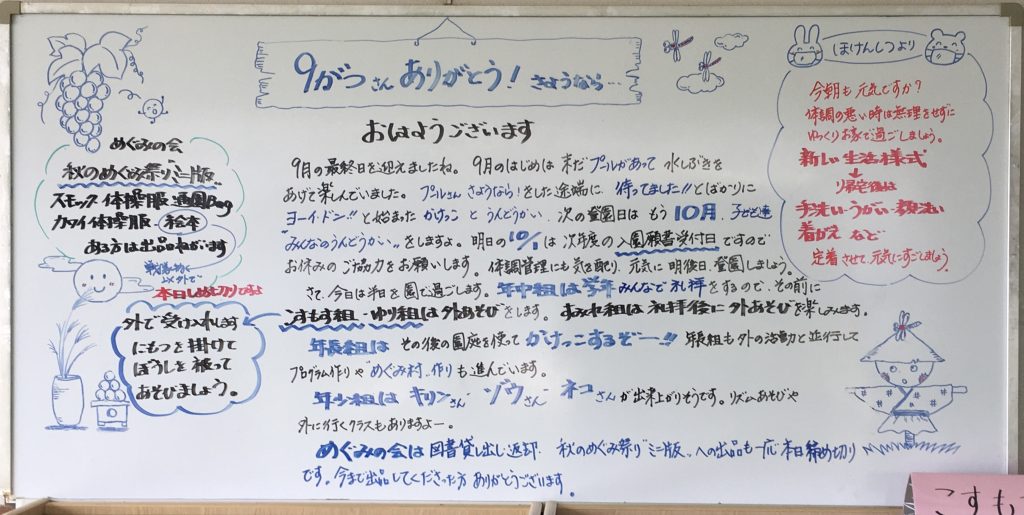 9がつさん ありがとう! さようなら…
おはようございます
9月の最終日を迎えましたね。 9月のはじめは まだ プールがあって 水しぶきを
あげて楽しんでいました。 プールさん さようなら!をした途端に、待ってました!!とばかりに
ヨーイ・ドン!!と始まった かけっこ と うんどうかい。次の登園日は もう 10月。子ども達
"みんなのうんどうかい"をしますよ。明日の10/1は 次年度の入園願書受付日ですので
お休みのご協力をお願いします。 体調管理にも気を配り、元気に明後日、登園しましょう。
さて、今日は半日を園で過ごします。年中組は学年みんなで礼拝をするので、その前に
こすもす組・ゆり組は外あそびをします。 すみれ組は礼拝後に外あそびを楽しみます。
年長組は その後の園庭を使って かけっこするぞー!! 年長組も外の活動と並行して
プログラム作りや"めぐみ村"作りも進んでいます。
年少組は キリンさん ゾウさん ネコさんが出来上がりそうです。リズムあそびや
外に行くクラスもありますよー。
めぐみの会は 図書貸し出し返却 秋のめぐみ祭り"ミニ版"への出品も一応本日締め切り
です。今まで出品してくださった方 ありがとうございます。
めぐみの会
秋のめぐみ祭り"ミニ版"
スモック 体操服 通園Bag
カワイ体操服・絵本
ある方は出品ねがいます
本日しめ切りですよ
外で受け入れします
にもつを掛けて
ぼうしを被って
あそびましょう。
ほけんしつより
今朝も元気ですか?
体調の悪い時は無理をせずに
ゆっくりお家で過ごしましょう。
新しい生活様式
↓
帰宅後は
手洗い・うがい・顔洗い
着がえ など
定着させて元気にすごしましょう
こすも